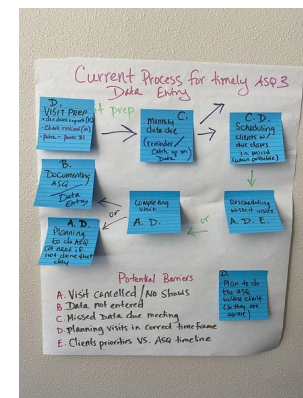 Current Process for timely ASQ3
Data Entry
D.
VISIT PREP
• due date report
• Chart review
prep
C.
Monthly
data due
(reminder/
Catch up on
Data)
C. D.
Scheduling
clients w/
due dates
in mind
(when possible)
B.
Documenting
ASQ
Data
Entry
Completing
visit
A. D.
Rescheduling
missed visits
A. D. E.
or
or
A. D.
Planning
to do ASQ
@ next if
not done that
day
Potential Barriers
A. Visit cancelled / No Shows
B. Data not entered
C. Missed Data due meeting
D. planning visits in correct timeframe
E. Clients priorities vs. ASQ timeline
D.
Plan to do
the ASQ
w/the client
(so they are
aware)